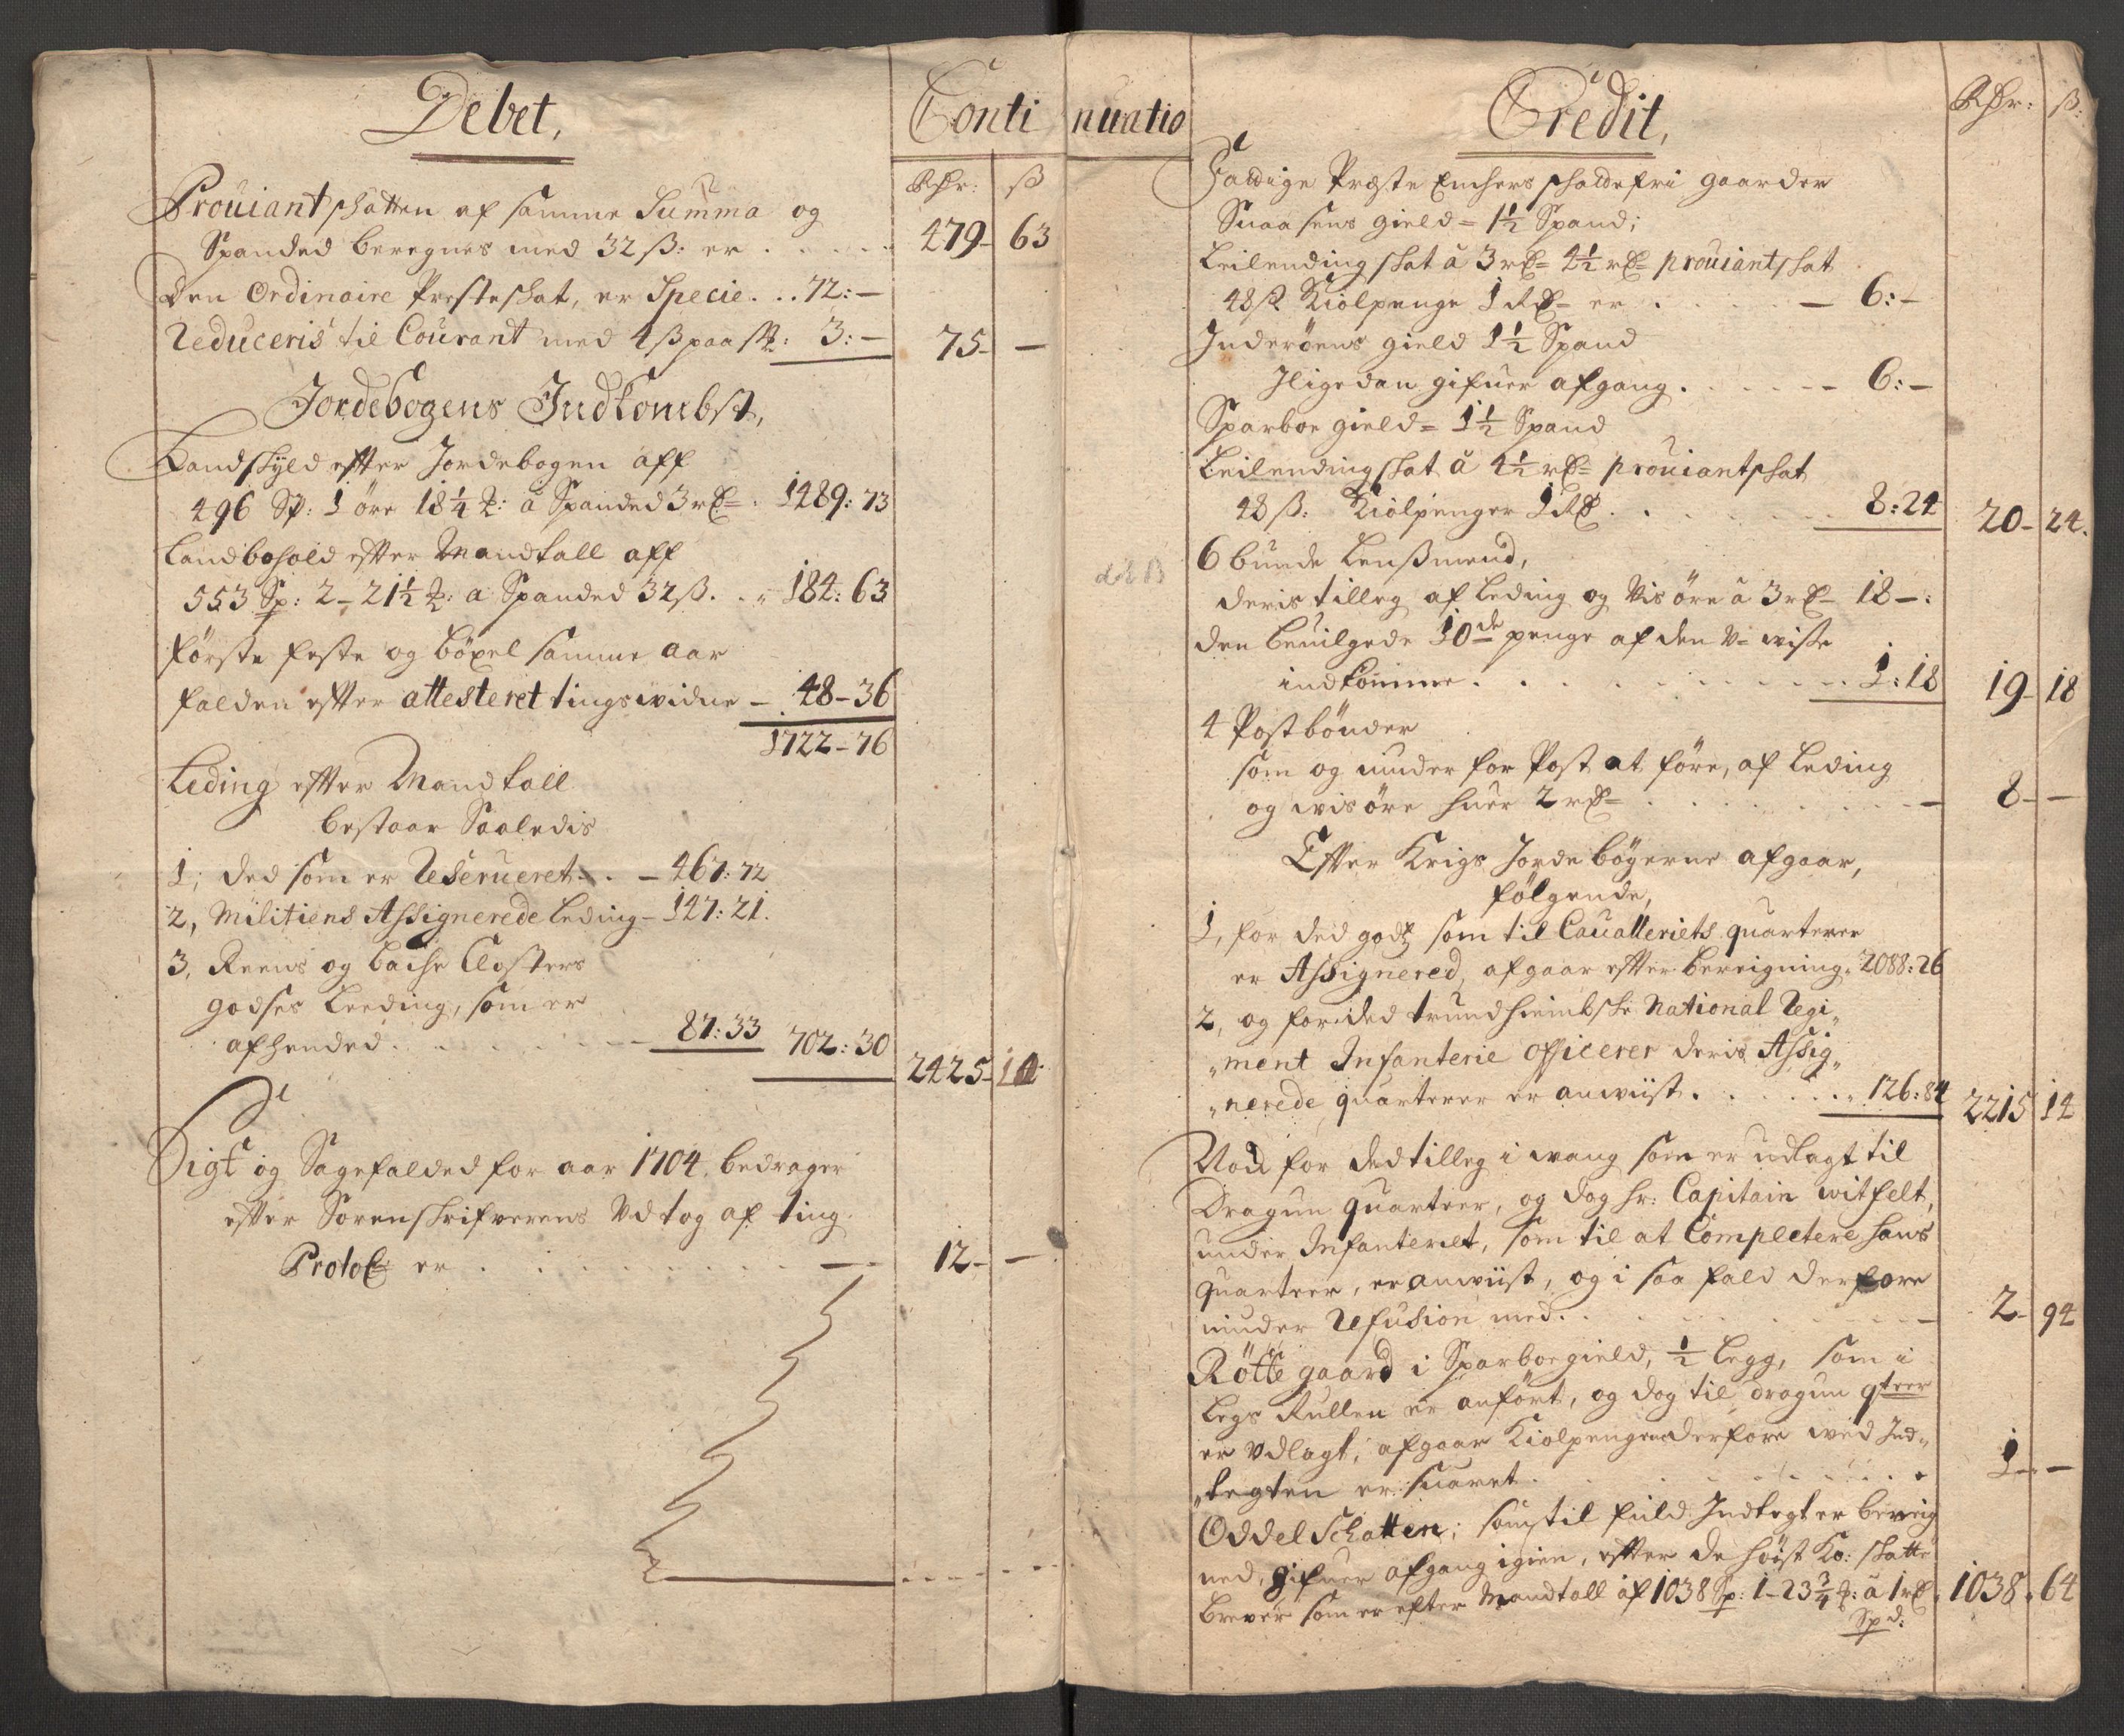 Debet,
Conti
Rdr: ß
Prouiant skatten af samme Summa og
Spanded beregnes med 32 ß: er . . . . . 479- 63
Den Ordinaire Presteskat, er Specie. . . 72:-
Reduceris til Courant med 4 ß paa 3:- 75- -
Jordebogens Indkombst,
Landskyld effter Jordebogen aff
496 Sp: 1 öre 18¼ : â Spanded 3 rd . 1489: 73
Landbohold effter Mandtall aff
553 Sp: 2 - 21½ : a Spanded 32 ß. . . 184: 63
förste feste og böxel samme aar
falden effter attesteret tingswidne - 48-36
1722-76
Leding effter Mandtall
bestaar Saaledis
1; ded som er Reserueret . . - 467: 72
2, Militiens Assignerede Leding - 147: 21.
3, Reens og bache Closters
godses Leeding, som er
afhended . . . . . . 87: 33 702: 30
2425- 10
Sigt og Sagefalded for aar 1704. bedrager
effter Sorenskrifverens Vdtog af ting
Protoc: er . . . . . . . . . - 12- -
nuatio
Credit,
Rdr: ß:
Fattige Præste Enchers skatdefri gaarder
Snaasens gield = 1½ Spand;
Leilending skat â 3 rd 4½ rd prouiant skat
48 ß Kiölpenge 1 Rd er . . . . - 6:-
Inderöens gield 1½ Spand
Jligedan gifuer afgang . . . . . 6:-
Sparboe gield = 1½ Spand
Leilending skat â 4½ rd prouiantskat
48 ß: Kiölpenger 1 Rd . . . . . 8:24 20- 24.
6 bunde Lensmend,
deris tilleg af Leding og Visöre â 3 rd 18-:
den beuilgede 10de penge af den V- wiße
indkomme . . . . . . . . . 1:18 19- 18
4 Postbönder
som og niuder for Post at före, af Leding
og wisöre huer 2 rd . . . . . . - 8- -
Effter Krigs Jordebögerne afgaar,
fölgende,
1, for ded gods som til Caualleriets quarterer
er Assignered, afgaar effter bereigning 2088: 26
2, og for ded trundhiembske National Regi„
„ment Infanterie Officerer deris Assig„
„nerede quarterer er anwiist . . . . . 126: 84 2215 14
Nock for ded tilleg i wang som er udlagt til
Dragun quarteer, og dog hr: Capitain witfelt,
under Infanteriet, som til at Complettere hans
quarteer, er anwiist, og i saa fald derfore
niuder Refusion med . . . . . . . . - 2- 94
Rötte gaard i Sparboegield, ½ Legg, som i
Legs Rullen er anfört, og dog til dragun qteer
er Vdlagt, afgaar Kiölpengen derfore wed Ind„
„tegten er suaret . . . . . . . . 1- -
Oddel Schatten; som til fuld Indtegt er bereig
ned, gifuer afgang igien, effter de höist Ko: skatte
brever som er efter Mandtall af 1038 Sp: 1-23¾ : â 1 rd 1038. 64
Spd: